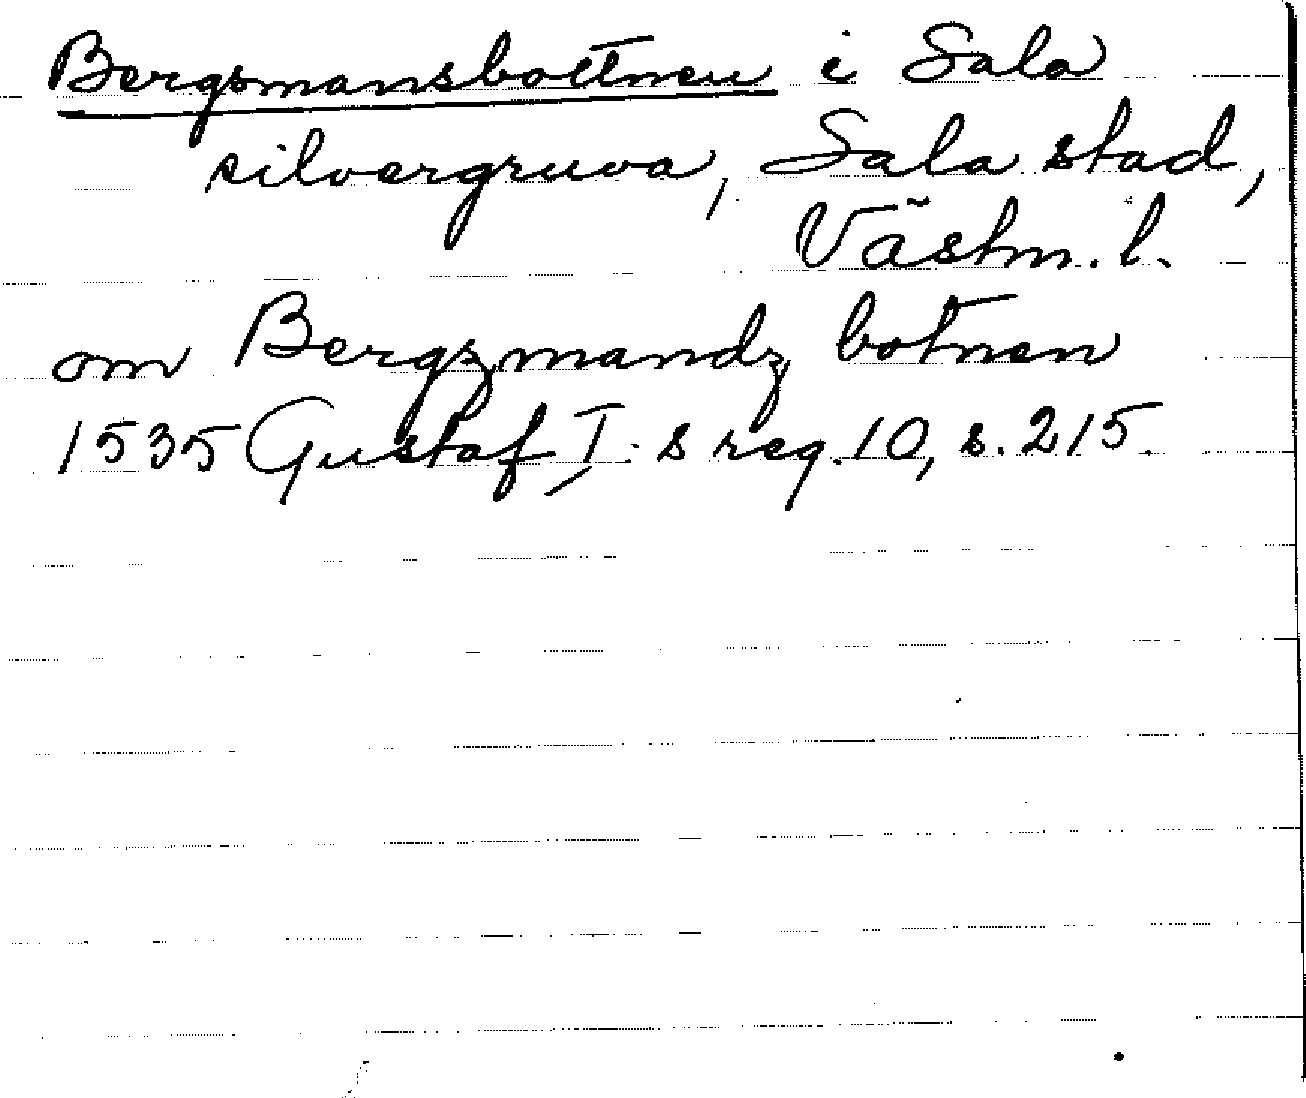 Bergsmansbottnen i Sala
silvergruva, Sala stad,
Västm. l.
om Bergzmandz botnen
1535 Gustaf I:s reg. 10, s. 215.